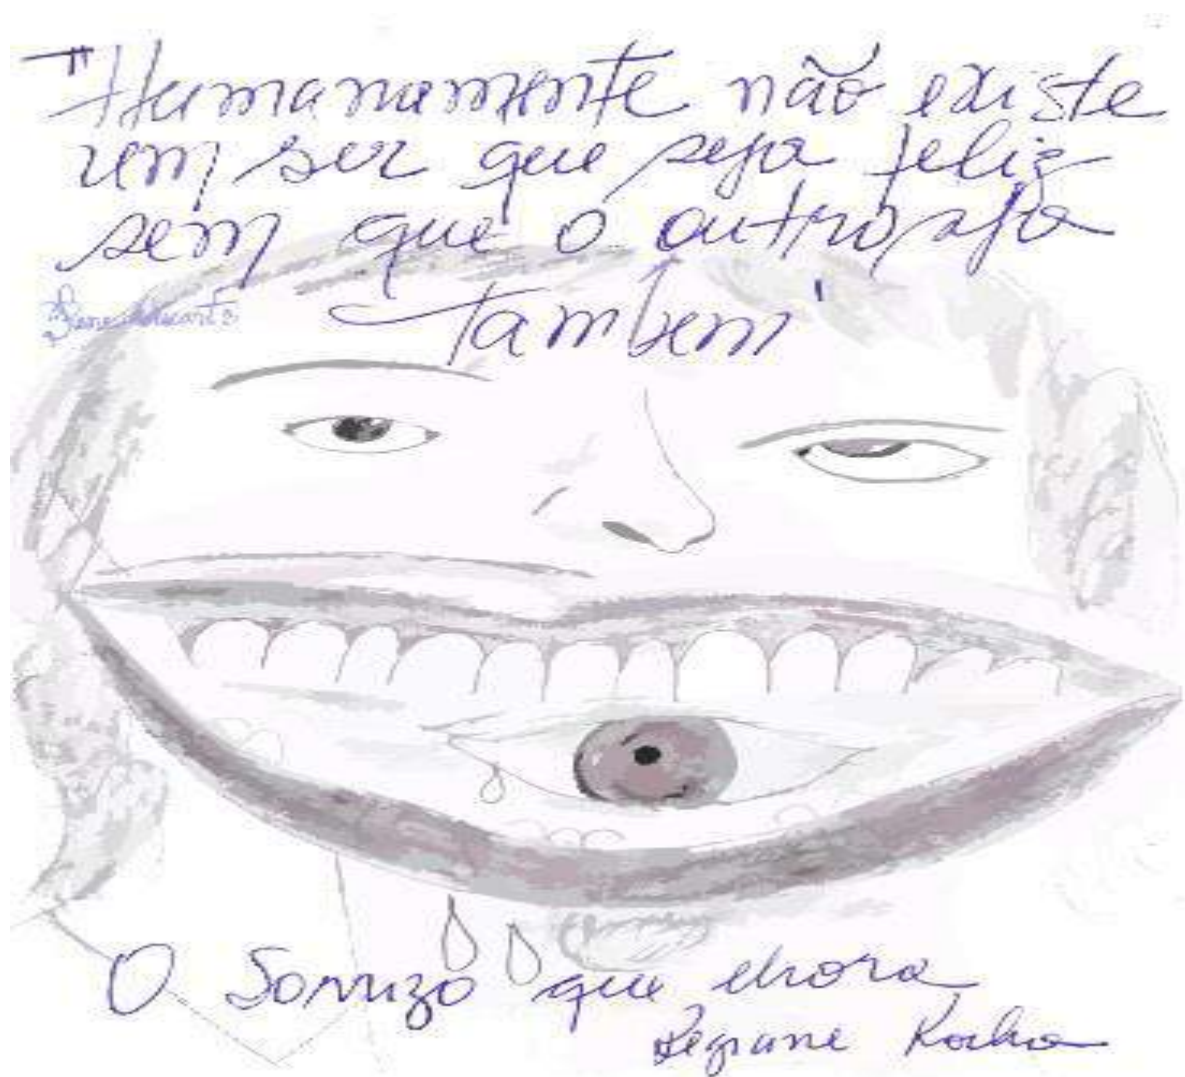 "Humanamente não existe
um ser que seja feliz
sem que o outro seja
também"
O Sorrizo que chora
Regiane Rocha